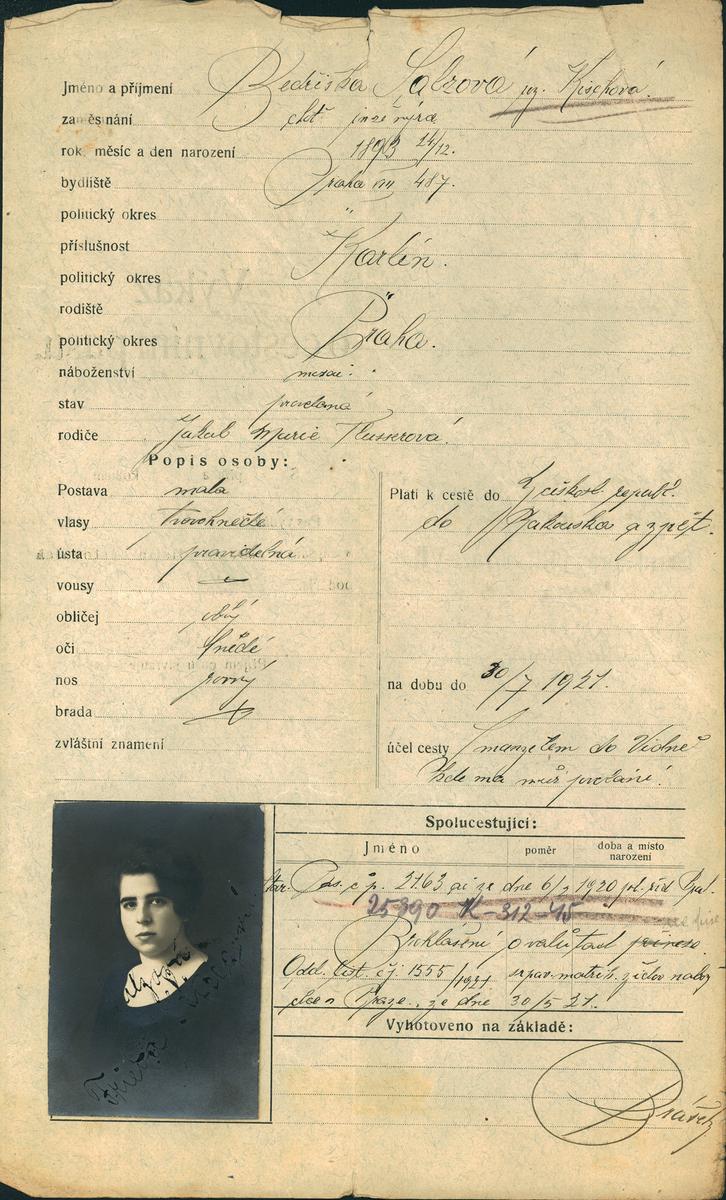 Jméno a příjmení Bedřiška Salzová roz. Kischová.
zaměstnání choť inženýra
rok, měsíc a den narození 1893 24/12.
bydliště Praha VII 487.
politický okres "
příslušnost Karlín.
politický okres "
rodiště
politický okres Praha.
náboženství mosai.
stav provdaná
rodiče Jakub Marie Flusserová.
Popis osoby:
Postava malá
vlasy tmavohnědé
ústa pravidelná
vousy –
obličej
oči hnědé
nos rovný
brada
zvláštní znamení
Platí k cestě do Českosl. republ.
do Rakouska a zpět.
na dobu do 30/7 1921.
účel cesty S manželem do Vídně
kde má muž povolání.
Spolucestující:
Jméno poměr doba a místo narození
Pas. č p. 2163 ai ze dne 6/7 1920 pol. řed
25390 K-312-45
Prohlášení o valutách
Odd. list. čj. 1555/1921 matrik.
obce v Praze, ze dne 30/5 21.
Vyhotoveno na základě: